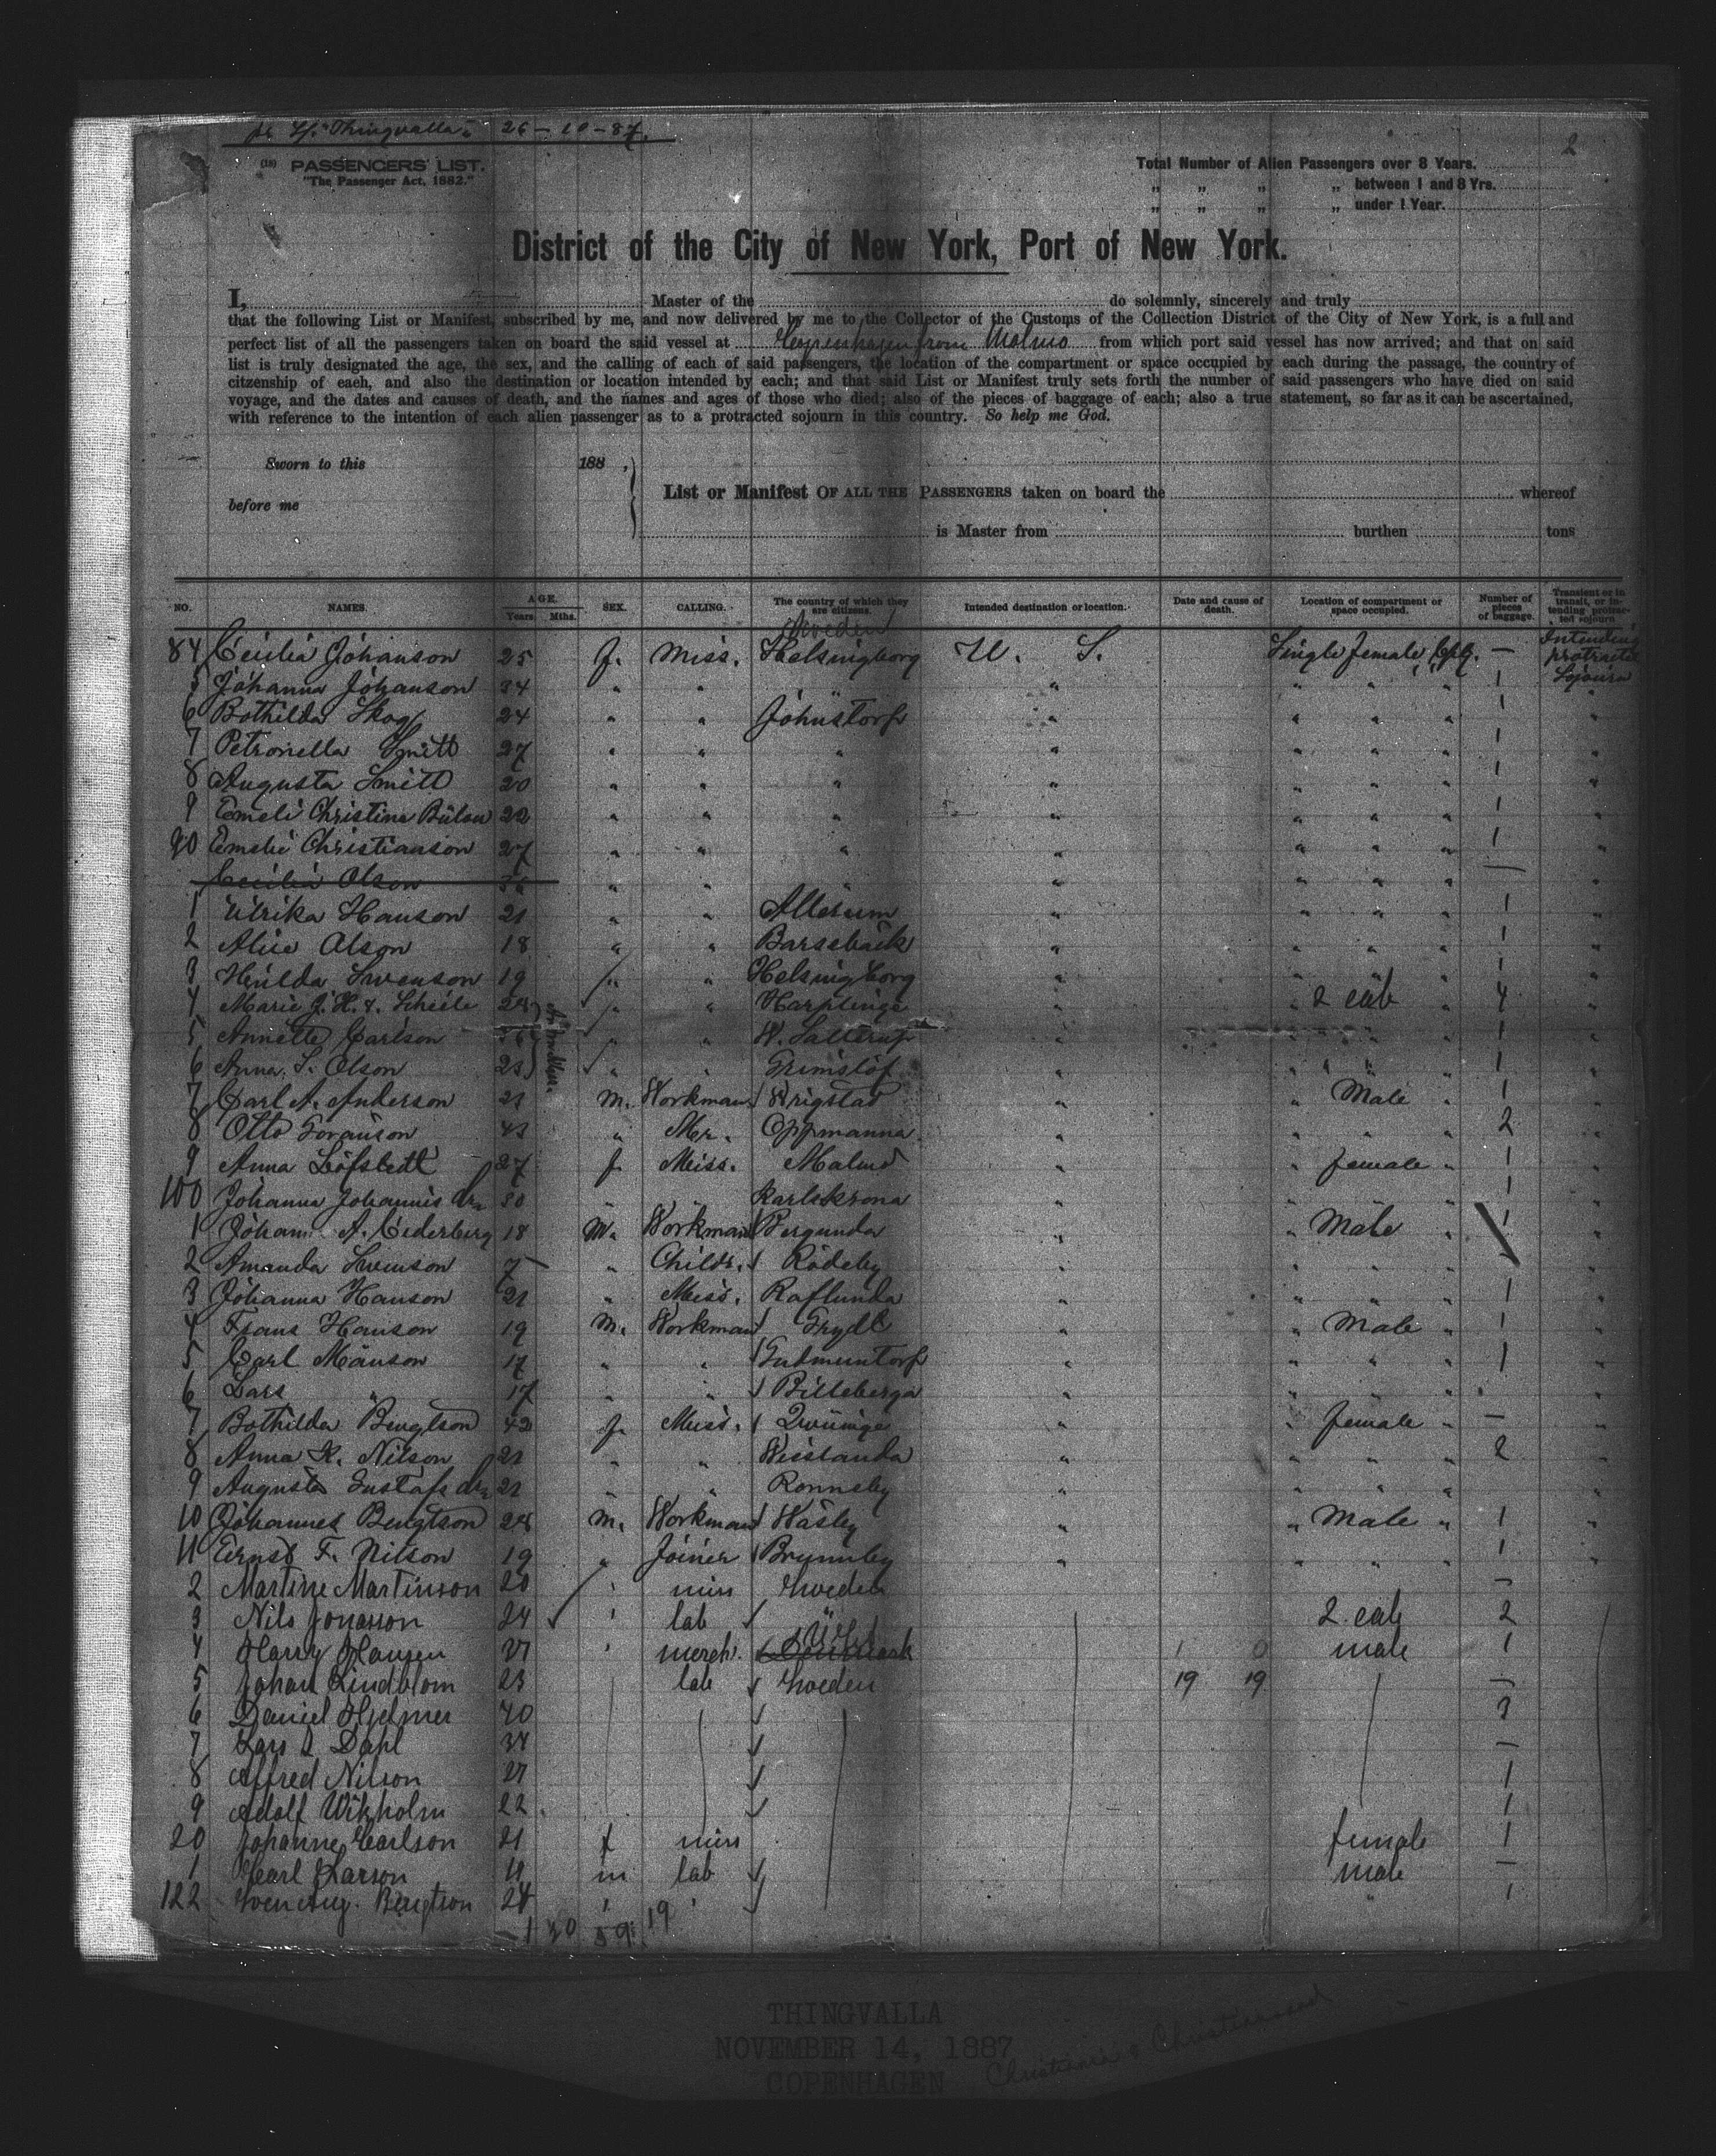 pr S/S "Thingvalla" 26-10-87.
2
(18) PASSENGERS' LIST.
"The Passenger Act, 1882."
Total Number of Alien Passengers over 8 Years.
" " " " between 1 and 8 Yrs.
" " " " under 1 Year.
District of the City of New York, Port of New York.
I, Master of the do solemnly, sincerely and truly
that the following List or Manifest, subscribed by me, and now delivered by me to the Collector of the Customs of the Collection District of the City of New York, is a full and
perfect list of all the passengers taken on board the said vessel at Copenhagen from Malmo from which port said vessel has now arrived; and that on said
list is truly designated the age, the sex, and the calling of each of said passengers, the location of the compartment or space occupied by each during the passage, the country of
citzenship of each, and also the destination or location intended by each; and that said List or Manifest truly sets forth the number of said passengers who have died on said
voyage, and the dates and causes of death, and the names and ages of those who died; also of the pieces of baggage of each; also a true statement, so far as it can be ascertained,
with reference to the intention of each alien passenger as to a protracted sojourn in this country. So help me God.
Sworn to this 188 ,
before me
List or Manifest OF ALL THE PASSENGERS taken on board the whereof
is Master from burthen tons
NO. NAMES. AGE. Years. Mths. SEX. CALLING. The country of which they are citizens. Intended destination or location. Date and cause of death. Location of compartment or space occupied. Number of pieces of baggage. Transient or in transit, or intending protracted sojourn
Sweden
84 Cecilia Johanson 25 f. Miss. Helsingborg U. S. Single female Cpt. — Intending protracted Sojourn
5 Johanna Johanson 34 " " " " " " 1 "
6 Bothilda Skog 24 " " Johnstorp " " " " 1 "
7 Petronella Smitt 27 " " " " " " " 1 "
8 Augusta Smitt 20 " " " " " " " 1 "
9 Emeli Christine Bülow 22 " " " " " " " 1 "
90 Emelie Christianson 27 " " " " " " " 1 "
Cecilia Olson " " " " " " —
1 Ulrika Hanson 21 " " Allerum " " " " 1 "
2 Alice Olson 18 " " Barsebäck " " " " 1 "
3 Hulda Swenson 19 f. " Helsingborg " " " " 1 "
4 Marie J. H. v. Scheele 28 f. " Harplinge " " 2 cab " 4 "
5 Annette Carlson " " 1 "
6 Anna S. Olson 23 " " Grimslöf " " " 1 "
7 Carl A. Anderson 21 m. Workman Wrigstad " " Male " 1 "
8 Otto Goranson 43 " Mr. Oppmanna " " " " 2 "
9 Anna Löfstedt 27 f. Miss. Malmö " " female " 1 "
100 Johanna Johannisdr 30 " " Karlskrona " " " " 1 "
1 Johan A. Cederberg 18 M. Workman Bergunda " " Male " 1 "
2 Amanda Swenson 7 " Childr. Rödeby " " " " "
3 Johanna Hanson 21 " Miss. Raflunda " " " " 1 "
4 Frans Hanson 19 M. Workman Grydt " " Male " 1 "
5 Carl Månson 17 " " Gudmuntorp " " " " 1 "
6 Lars " 17 " " Billeberga " " " " "
7 Bothilda Bengtson 43 f. Miss. Qwiinge " " female " — "
8 Anna K. Nilson 21 " " Wislanda " " " " 2 "
9 Augusta Gustafsdr 21 " " Ronneby " " " "
10 Johannes Bengtson 28 m. Workman Wäsby " " Male " 1 "
11 Ernst F. Nilson 19 " Joiner Brunnby " " " " 1 "
2 Martine Martinson 20 " miss Sweden —
3 Nils Jonasson 24 " lab " 2 cab 2
4 Harry Hansen 21 " merch. Denmark 1 0 male 1
5 Johan Lindblom 23 lab Sweden 19 19 —
6 Daniel Hjelmer 40 3
7 Lars Dahl 34 —
8 Alfred Nilson 21 1
9 Adolf Wikholm 22 1
20 Johanne Carlson 21 f miss female 1
1 Carl Larson m lab male —
122 Sven Aug. Bengtson 24 " " " 1
1 20 59 19
THINGVALLA
NOVEMBER 14, 1887
COPENHAGEN
Christiania & Christiansand